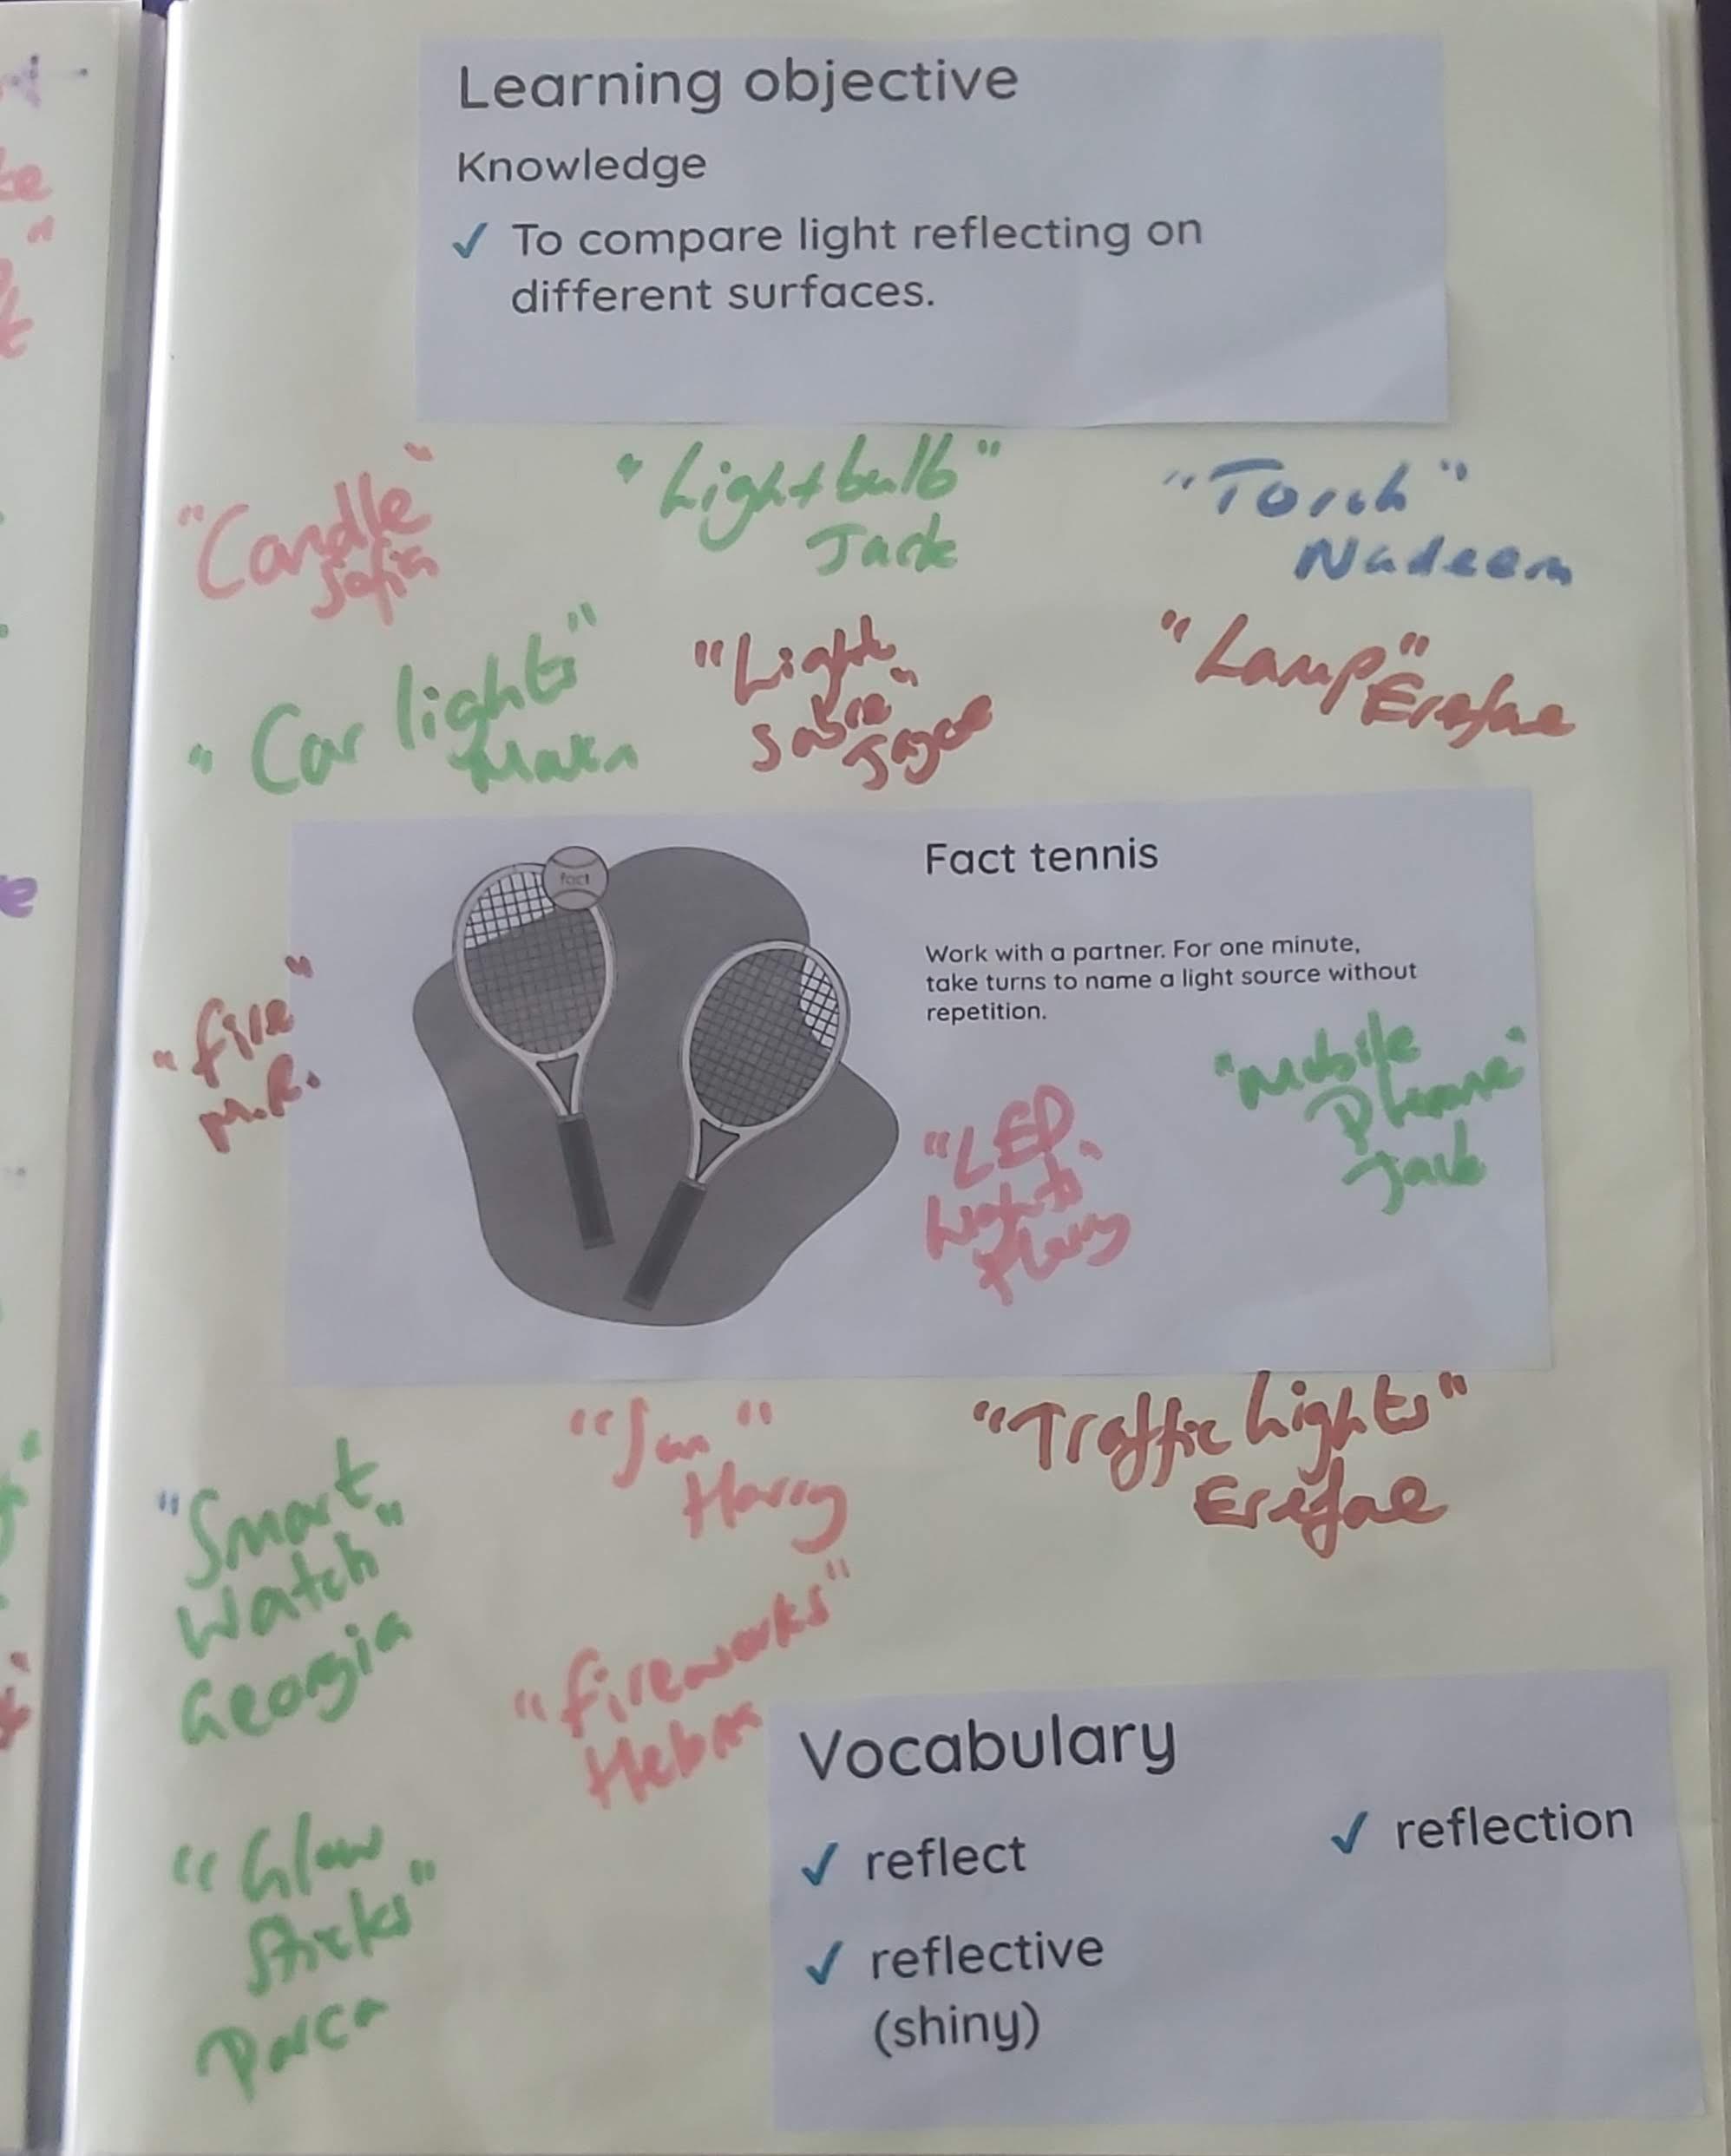 Learning objective
Knowledge
✓ To compare light reflecting on
different surfaces.
"Candle"
Sofia
"Lightbulb"
Jack
"Torch"
Nadeem
"Car lights"
"Light
Sabre"
"Lamp"
Erefae
fact
Fact tennis
Work with a partner. For one minute,
take turns to name a light source without
repetition.
"fire"
M.R.
"LED
Lights"
Harry
"Mobile
Phone"
Jack
"Sun"
Harry
"Traffic Lights"
Erefae
"Smart
Watch"
Georgia
"fireworks"
"Glow
Sticks"
Vocabulary
✓ reflect
✓ reflection
✓ reflective
(shiny)